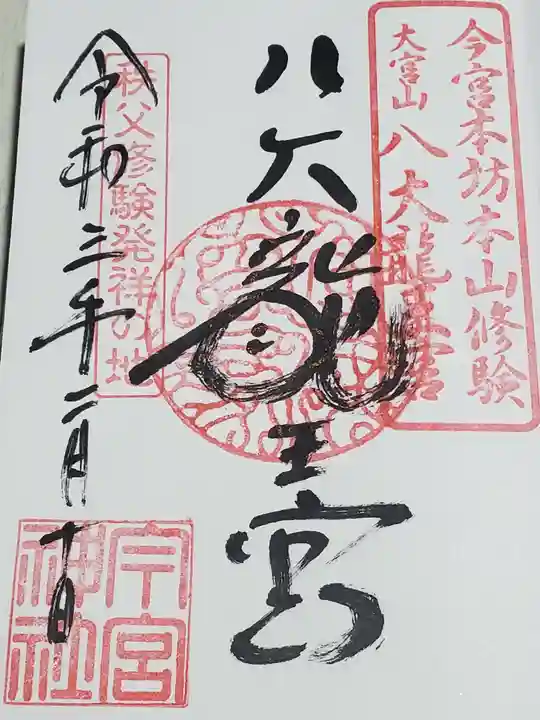 今宮本坊本山修験
大宮山 八大龍王宮
八大龍王宮
秩父修験発祥の地
令和三年二月十日
今宮
神社